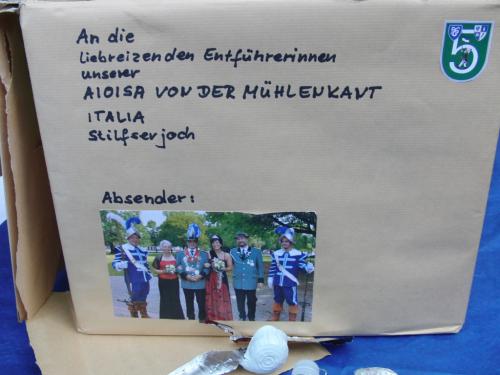 An die
liebreizenden Entführerinnen
unserer
AlOISA VON DER MÜHLENKAUT
ITALIA
Stilfserjoch
Absender:
5